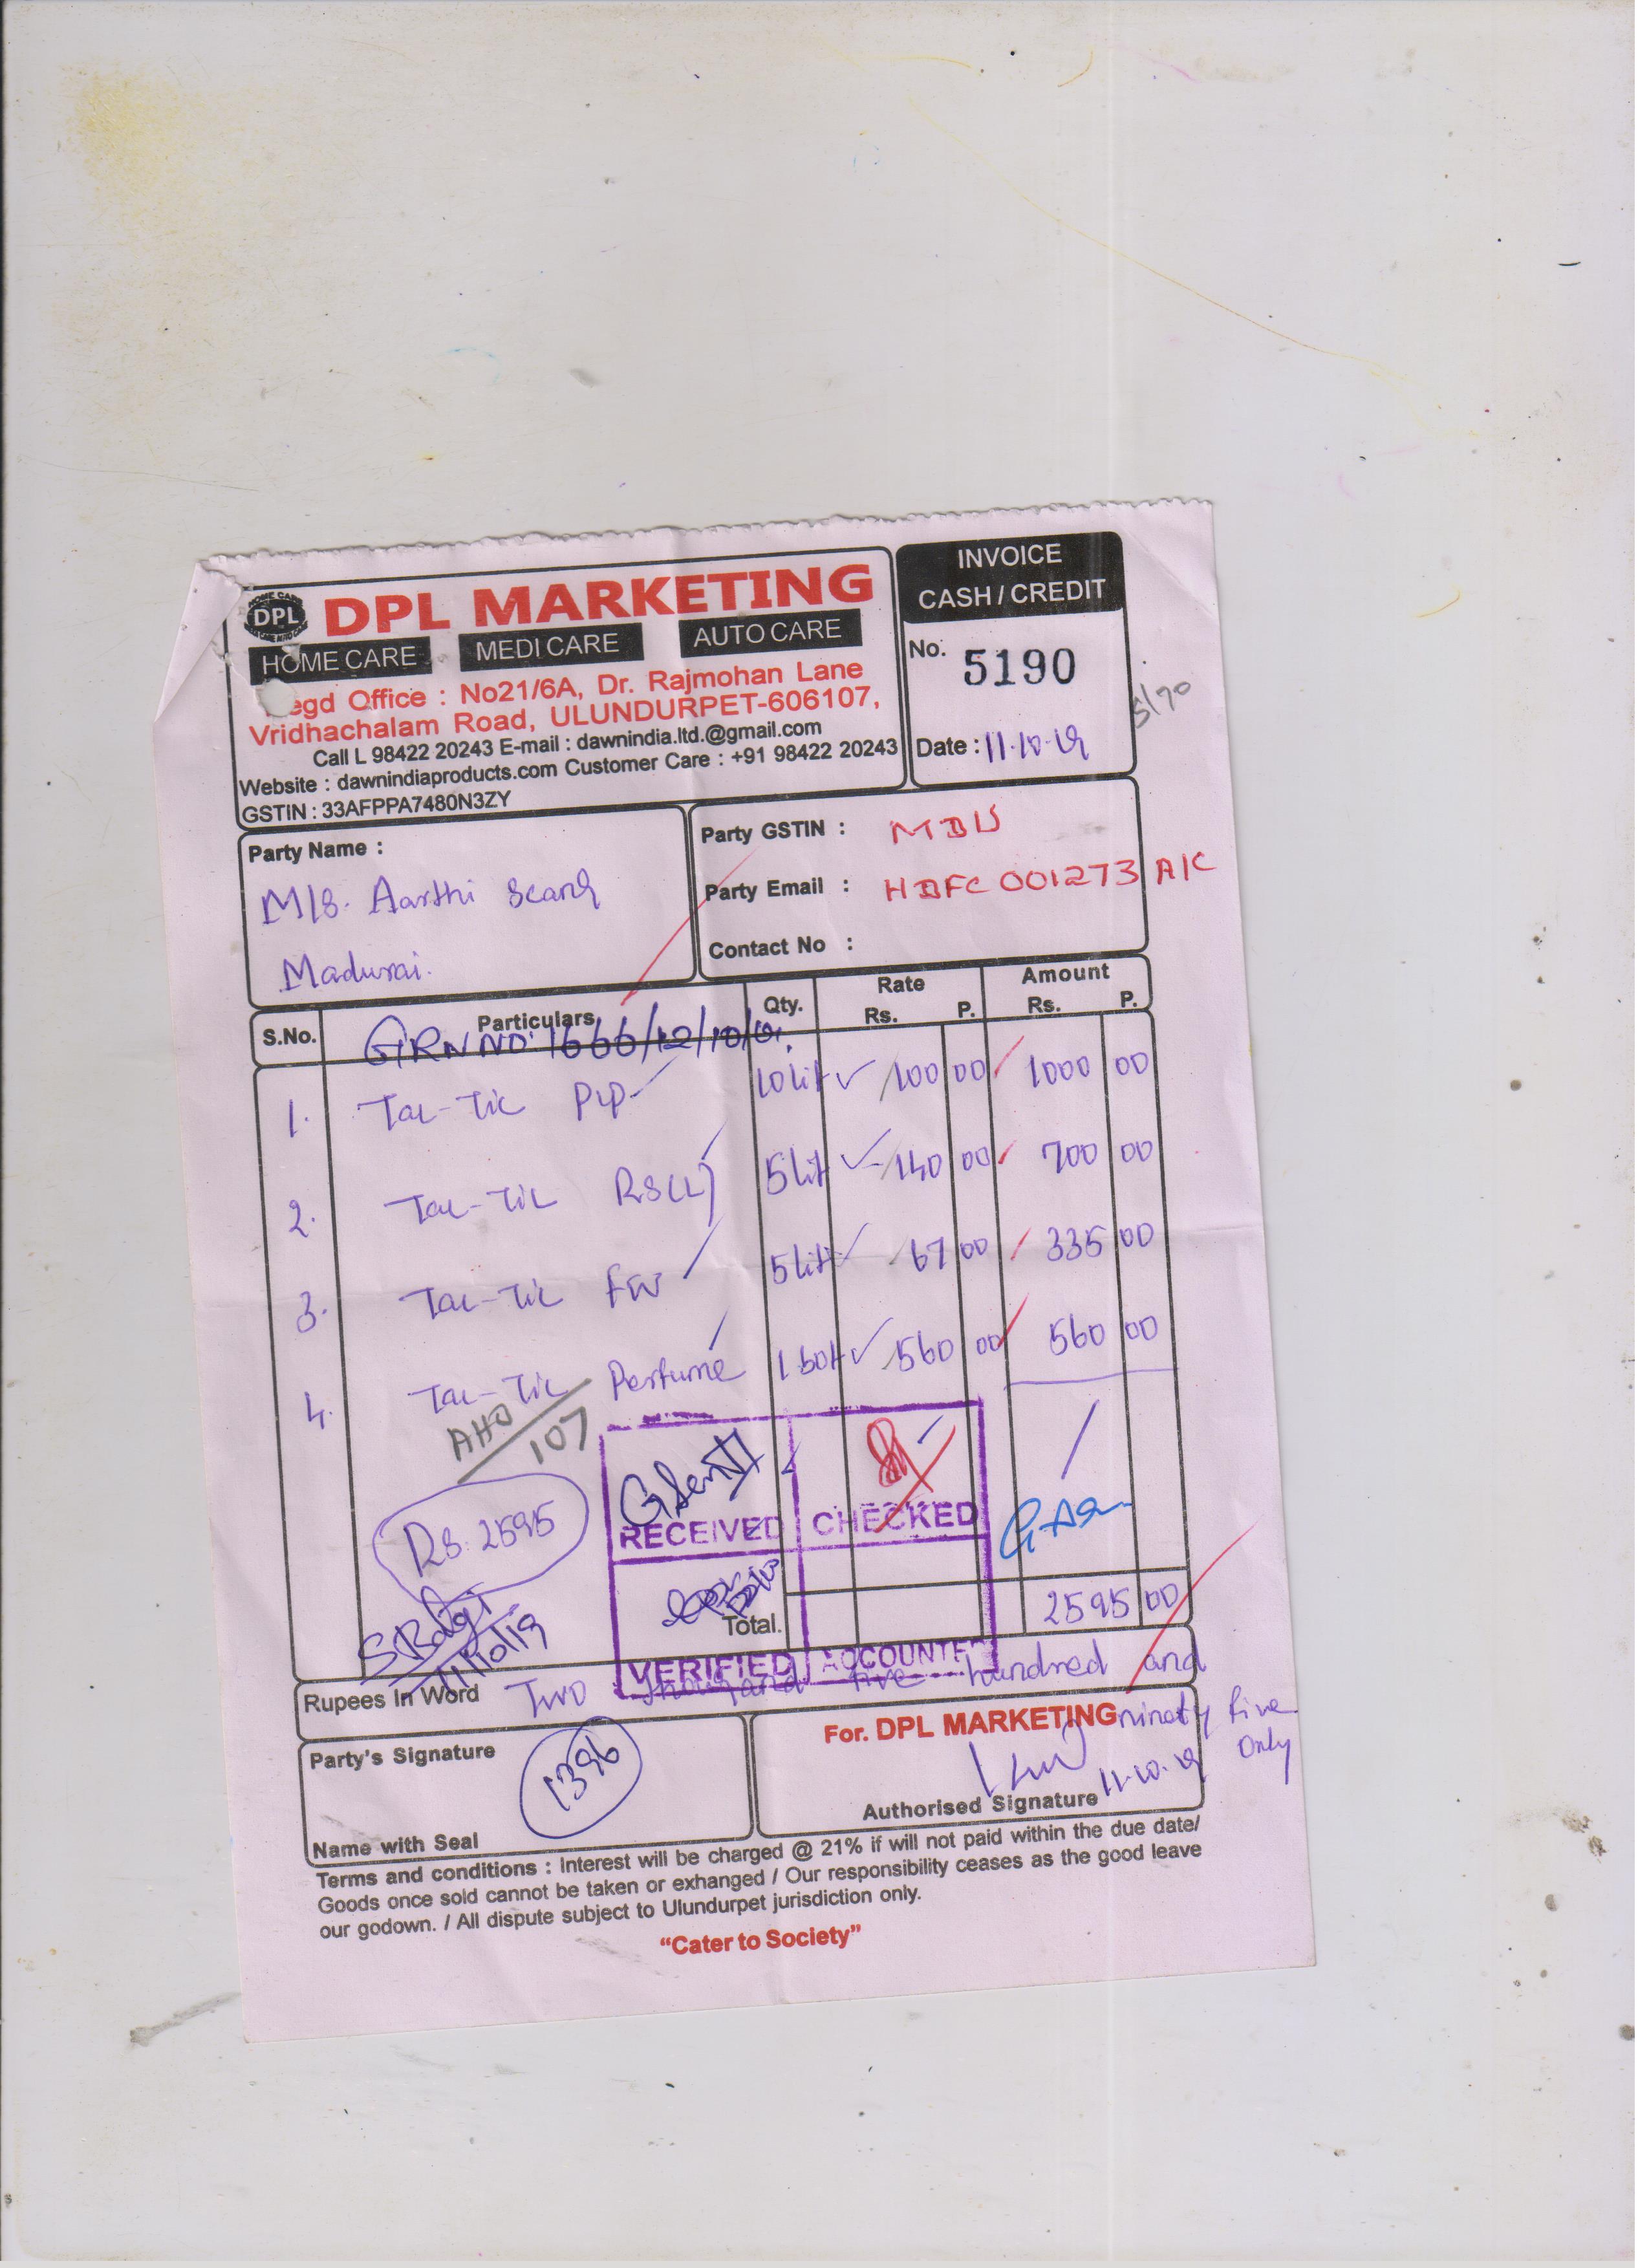 INVOICE
CASH / CREDIT
DPL
DPL MARKETING
HOME CARE MEDI CARE AUTO CARE
No. 5190
egd Office : No21/6A, Dr. Rajmohan Lane
Vridhachalam Road, ULUNDURPET-606107,
Call L 98422 20243 E-mail : dawnindia.ltd.@gmail.com
Website : dawnindiaproducts.com Customer Care : +91 98422 20243
GSTIN : 33AFPPA7480N3ZY
Date : 11.10.19
Party Name :
M/s. Aarthi Scans
Madurai.
Party GSTIN : MDU
Party Email : HDFC 001273 A/C
Contact No :
S.No. Particulars Qty. Rate Rs. P. Amount Rs. P.
GRN NO: 1666/12/10/19.
1. Tac-Tic PIP 10 lit 100 00 1000 00
2. Tac-Tic RS(L) 5 lit 140 00 700 00
3. Tac-Tic FW 5 lit 67 00 335 00
4. Tac-Tic Perfume 1 bot 560 00 560 00
AHO/107
Rs. 2595
RECEIVED CHECKED
11/10/19
Total. 2595 00
VERIFIED ACCOUNTE
Rupees In Word Two thousand five hundred and
ninety five
only
For. DPL MARKETING
Party's Signature
1396
11.10.19
Authorised Signature
Name with Seal
Terms and conditions : Interest will be charged @ 21% if will not paid within the due date/
Goods once sold cannot be taken or exhanged / Our responsibility ceases as the good leave
our godown. / All dispute subject to Ulundurpet jurisdiction only.
“Cater to Society”